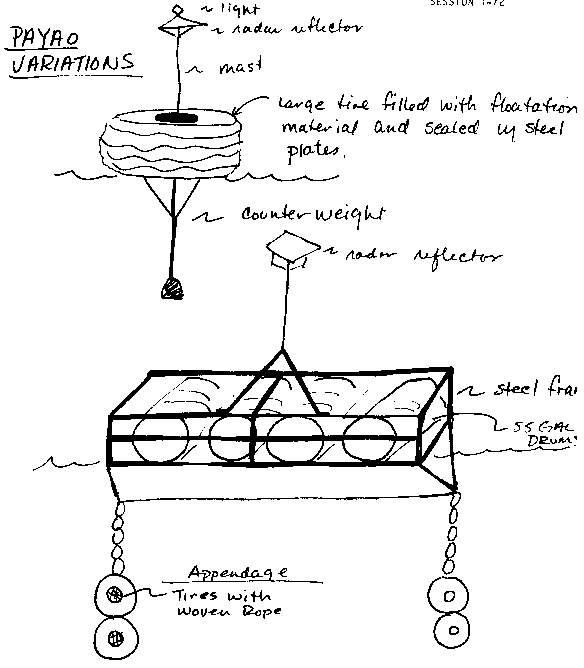 SESSION 1-72
PAYAO
VARIATIONS
light
radar reflector
mast
Large tire filled with floatation
material and sealed w/ steel
plates.
counterweight
radar reflector
steel fra
55 GAL
DRUMS
Appendage
Tires with
Woven Rope